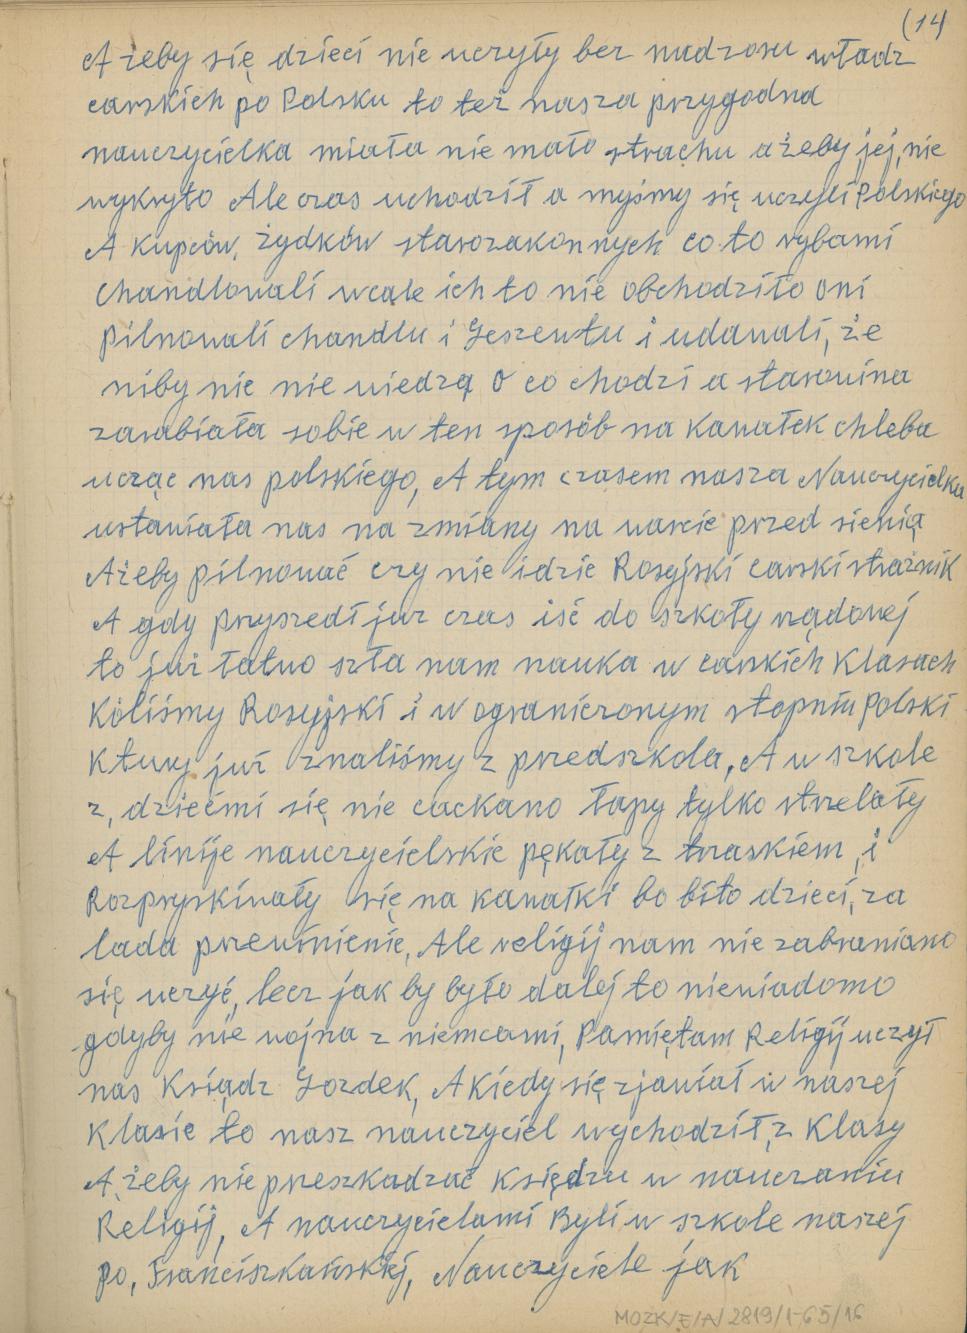 (14)
A żeby się dzieci nie uczyły bez nadzoru władz
carskich po Polsku to też nasza przygodna
nauczycielka miała nie mało strachu ażeby jej, nie
wykryto Ale czas uchodził a myśmy się uczyli Polskiego
A kupców, żydków starozakonnych co to rybami
chandlowali wcale ich to nie obchodziło oni
pilnowali chandlu i Geszewtu i udawali, że
niby nic nie wiedzą o co chodzi a starowina
zarabiała sobie w ten sposób na kawałek chleba
ucząc nas polskiego, A tym czasem nasza Nauczycielka
ustawiała nas na zmiany na warcie przed sienią
Ażeby pilnować czy nie idzie Rosyjski carski strażnik
A gdy przyszedł już czas iść do szkoły rządowej
to już łatwo szła nam nauka w carskich Klasach
Kóliśmy Rosyjski i w ograniczonym stopniu Polski
Ktury już znaliśmy z przedszkola, A w szkole
z, dziećmi się nie cackano łapy tylko strzelały
A linije nauczycielskie pękały z traskiem, i
Rozpryskiwały się na kawałki bo bito dzieci, za
lada przewinienie, Ale religij nam nie zabraniano
się uczyć, lecz jak by było dalej to niewiadomo
gdyby nie wojna z niemcami, Pamiętam Religij uczył
nas Ksiądz Gozdek, A kiedy się zjawiał w naszej
Klasie to nasz nauczyciel wychodził, z Klasy
A, żeby nie preszkadzać Księdzu w nauczaniu
Religij, A nauczycielami Byli w szkole naszej
po, Franciszkańskiej, Nauczyciele jak
MOZK/E/A/2819/1-65/16